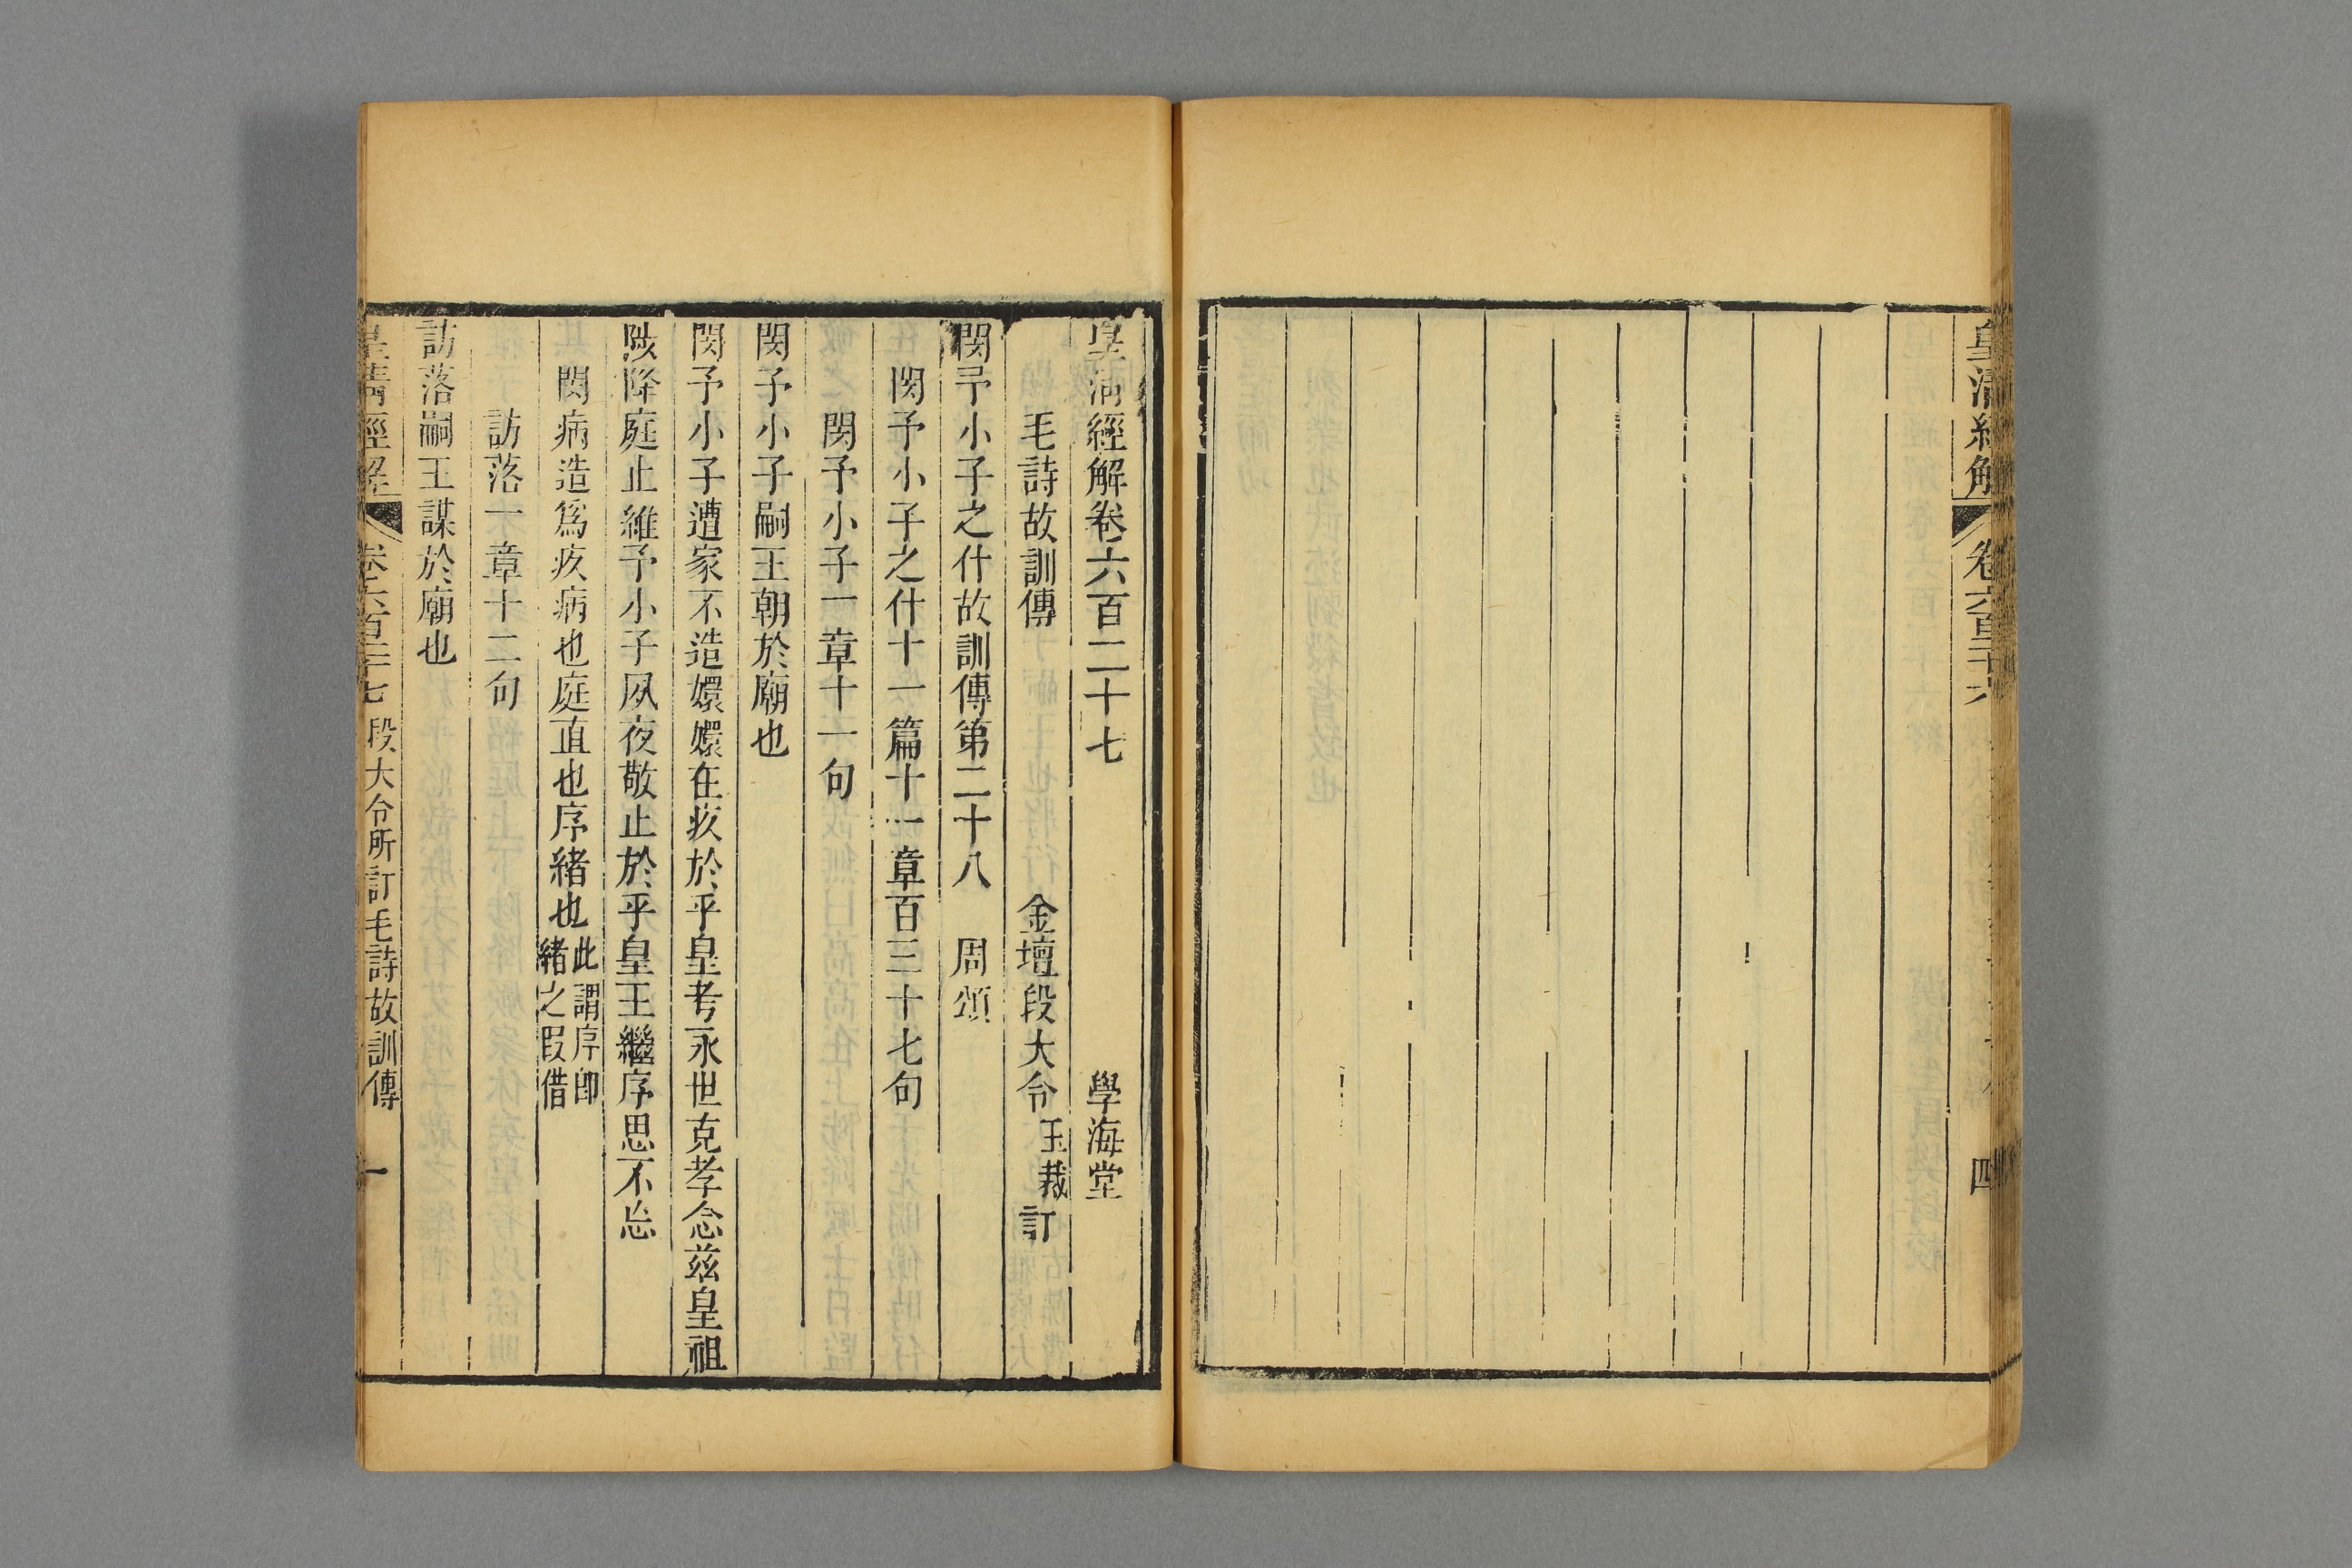 皇清經解 卷六百二十六 四
皇清經解卷六百二十七 學海堂
毛詩故訓傳 金壇段大令玉裁訂
閔予小子之什故訓傳第二十八 周頌
閔予小子之什十一篇十一章百三十七句
閔予小子一章十一句
閔予小子嗣王朝於廟也
閔予小子遭家不造嬛嬛在疚於乎皇考永世克孝念兹皇祖
陟降庭止維予小子夙夜敬止於乎皇王繼序思不忘
閔病造爲疚病也庭直也序緒也此謂序卽
緒之叚借
訪落一章十二句
訪落嗣王謀於廟也
皇清經解 卷六百二十七 段大令所訂毛詩故訓傳 一